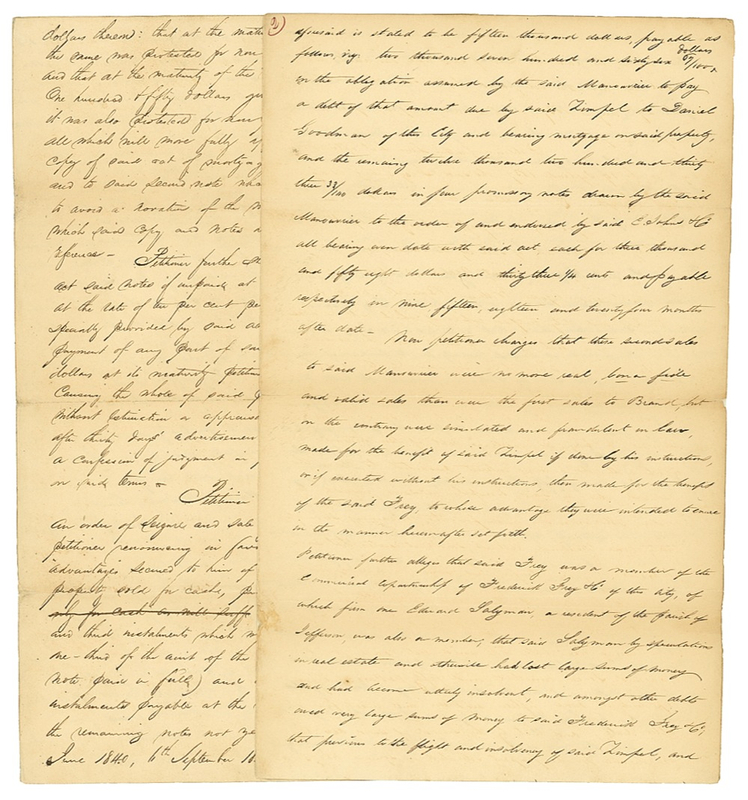 dollars thereon: that at the matu
the same was protested for non
and that at the maturity of the
One hundred & fifty dollars
it was also protested for non
all which will more fully
copy of said act of mortgag
and to said second note
to avoid a novation of the
which said copy and notes
reference — Petitioner further
act said notes if unpaid at
at the rate of ten per cent per
specially provided by said
payment of any part of said
dollars at its maturity petition
causing the whole of said
without estimation or appraise
after thirty days' advertisement
a confession of judgment in
on such terms —
Petitioner
An order of Seizure and sale
petitioner renouncing in favor
advantages secured to him
property sold for cash,
for cash
and third instalments which
one-third of the amt of the
note, paid in full) and
instalments payable at the
the remaining notes not
June 1840, 6th September 18
2)
aforesaid is stated to be fifteen thousand dollars, payable as
follows, viz: two thousand seven hundred and sixty six dollars 67/100,
in the obligation assumed by the said Manouvrier to pay
a debt of that amount due by said Zimpel to Daniel
Goodman of this City and bearing mortgage on said property,
and the remaining twelve thousand two hundred and thirty
three 33/100 dollars in four promissory notes drawn by the said
Manouvrier to the order of and endorsed by said E. Johns & Co
all bearing even date with said act each for three thousand
and fifty eight dollars and thirty three cents and payable
respectively in nine, fifteen, eighteen and twenty four months
after date — Now petitioner charges that these second sales
to said Manouvrier were no more real, bona fide
and valid sales than were the first sales to Brand, but
on the contrary were simulated and fraudulent in law,
made for the benefit of said Zimpel if done by his instruction,
or if executed without his instructions, then made for the benefit
of the said Frey, to whose advantage they were intended to enure
in the manner hereinafter set forth.
Petitioner further alleges that said Frey was a member of the
Commercial Copartnership of Frederick Frey & Co of this city, of
which firm one Edward Salzman, a resident of the Parish of
Jefferson, was also a member; that said Salzman by speculations
in real estate and otherwise had lost large sums of money
and had become utterly insolvent, and amongst other debts
owed very large sums of money to said Frederick Frey & Co,
that previous to the flight and insolvency of said Zimpel, and